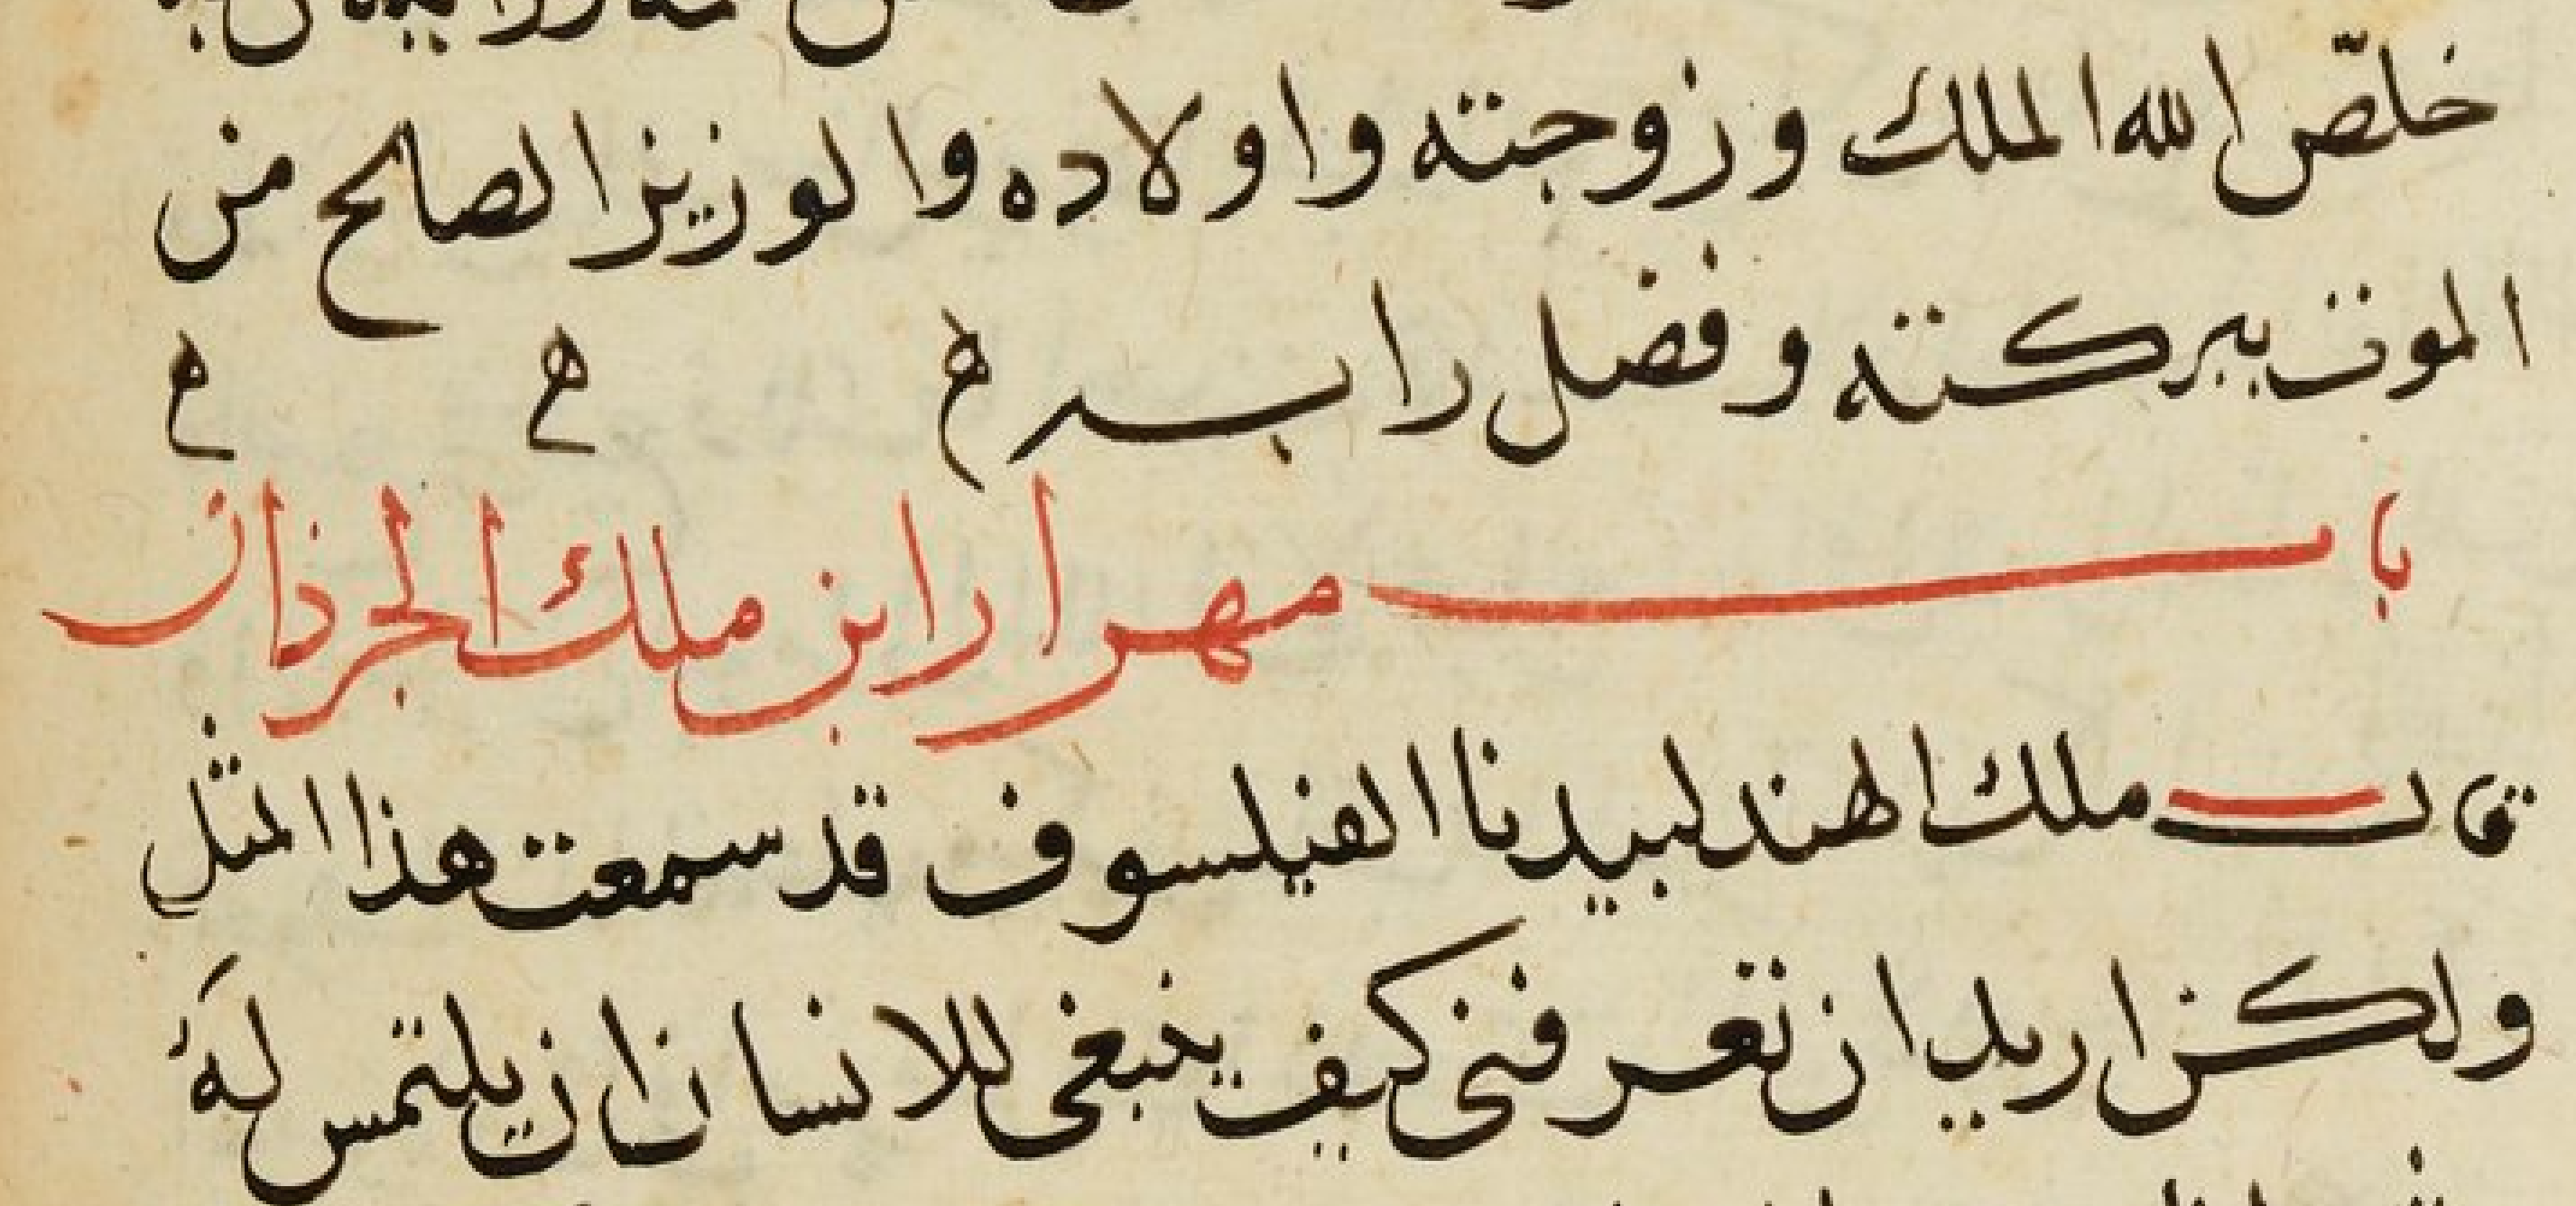 خلّص الله الملك وزوجته واولاده والوزير الصالح من
الموت ببركته وفضل رايه
باب مهرار ابن ملك الجرذان
قال ملك الهند لبيدنا الفيلسوف قد سمعت هذا المثل
ولكن اريد ان تعرفنى كيف ينبغى للانسان ان يلتمس لهَُ